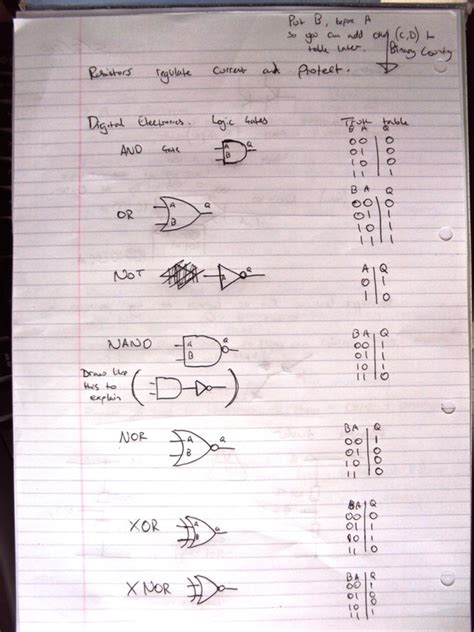 Put B, before A
so you can add (C,D) to
table later. Binary County
Resistors regulate current and Protect.
Digital Electronics. Logic Gates
Truth table
AND Gate
A
B
Q
B A Q
00 0
01 0
10 0
11 1
OR
A
B
Q
B A Q
00 0
01 1
10 1
11 1
NOT
A
Q
A Q
0 1
1 0
NAND
A
B
Q
B A Q
00 1
01 1
10 1
11
Draw like
this to
explain
NOR
A
B
Q
BA Q
00 1
01 0
10 0
11 0
XOR
A
B
Q
BA Q
00 0
01 1
10 1
11 0
XNOR
A
B
Q
BA Q
00
01
10
11